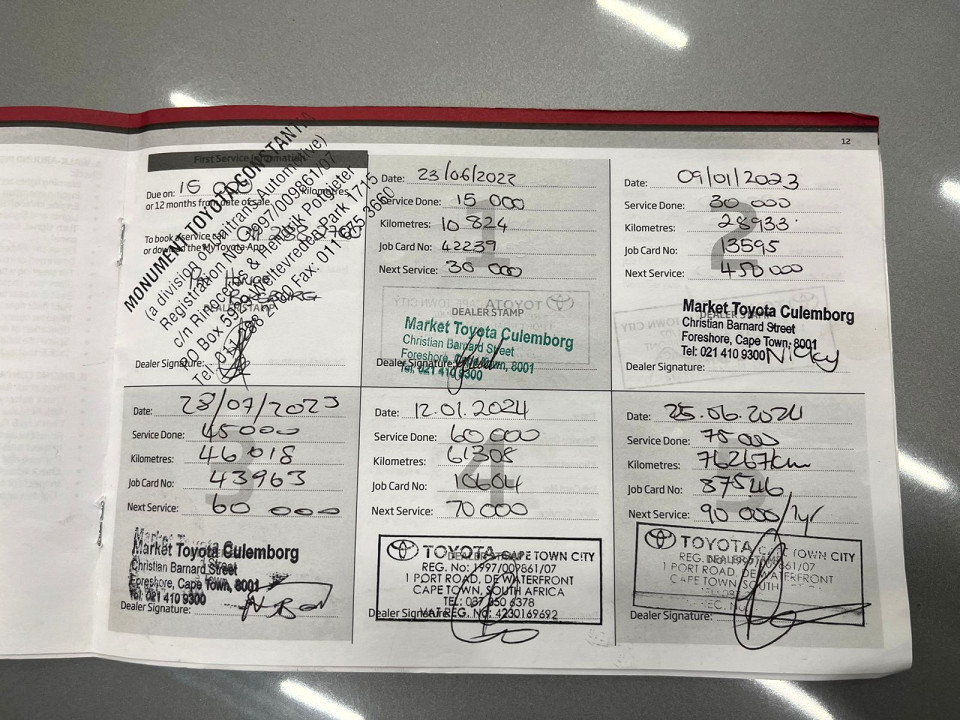 12
First Service Information
Due on: 15 kilometres
or 12 months from date of sale.
To book a service
or download the MyToyota App
MONUMENT TOYOTA CONSTANTIA
(a division of Unitrans Automotive)
Registration No 1997/009861/07
c/n Rinoceros & Hendrik Potgieter
PO Box 592, Weltevreden Park 1715
Fax: 011 675 3660
Dealer Signature:
Date: 23/06/2022
Service Done: 15 000
Kilometres: 10 824
Job Card No: 42239
Next Service: 30 000
1
DEALER STAMP
TOYOTA CAPE TOWN CITY
Market Toyota Culemborg
Christian Barnard Street
Foreshore, Cape Town, 8001
Tel: 021 410 9300
Dealer Signature:
Date: 09/01/2023
Service Done: 30 000
Kilometres: 28933
Job Card No: 13595
Next Service: 450 000
2
DEALER STAMP
Market Toyota Culemborg
Christian Barnard Street
Foreshore, Cape Town, 8001
Tel: 021 410 9300
Nicky
Dealer Signature:
Date: 28/07/2023
Service Done: 45000
Kilometres: 46 018
Job Card No: 43963
Next Service: 60 000
3
Market Toyota Culemborg
Christian Barnard Street
Foreshore, Cape Town, 8001
Tel: 021 410 9300
Dealer Signature:
Date: 12.01.2024
Service Done: 60000
Kilometres: 61308
Job Card No: 10604
Next Service: 70000
4
DEALER STAMP
TOYOTA CAPE TOWN CITY
REG. No: 1997/009861/07
1 PORT ROAD, DE WATERFRONT
CAPE TOWN, SOUTH AFRICA
TEL: 087 350 6378
VAT REG. NO: 4230169692
Dealer Signature:
Date: 25.06.2024
Service Done: 75000
Kilometres: 76267km
Job Card No: 87546
Next Service: 90 000/1yr
DEALER STAMP
TOYOTA CAPE TOWN CITY
REG. No: 1997/009861/07
1 PORT ROAD, DE WATERFRONT
CAPE TOWN, SOUTH
Dealer Signature: